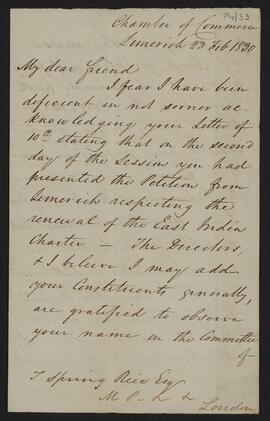 P14/33
Chamber of Commerce
Limerick 23 Feb 1830
My dear friend
I fear I have been
deficient in not sooner ac-
knowledging your Letter of
10th stating that on the second
day of the Session you had
presented the Petition from
Limerick respecting the
renewal of the East India
Charter — The Directors,
& I believe I may add
your Constituents generally,
are gratified to observe
your name on the Committee
of
T Spring Rice Esq
M P
London